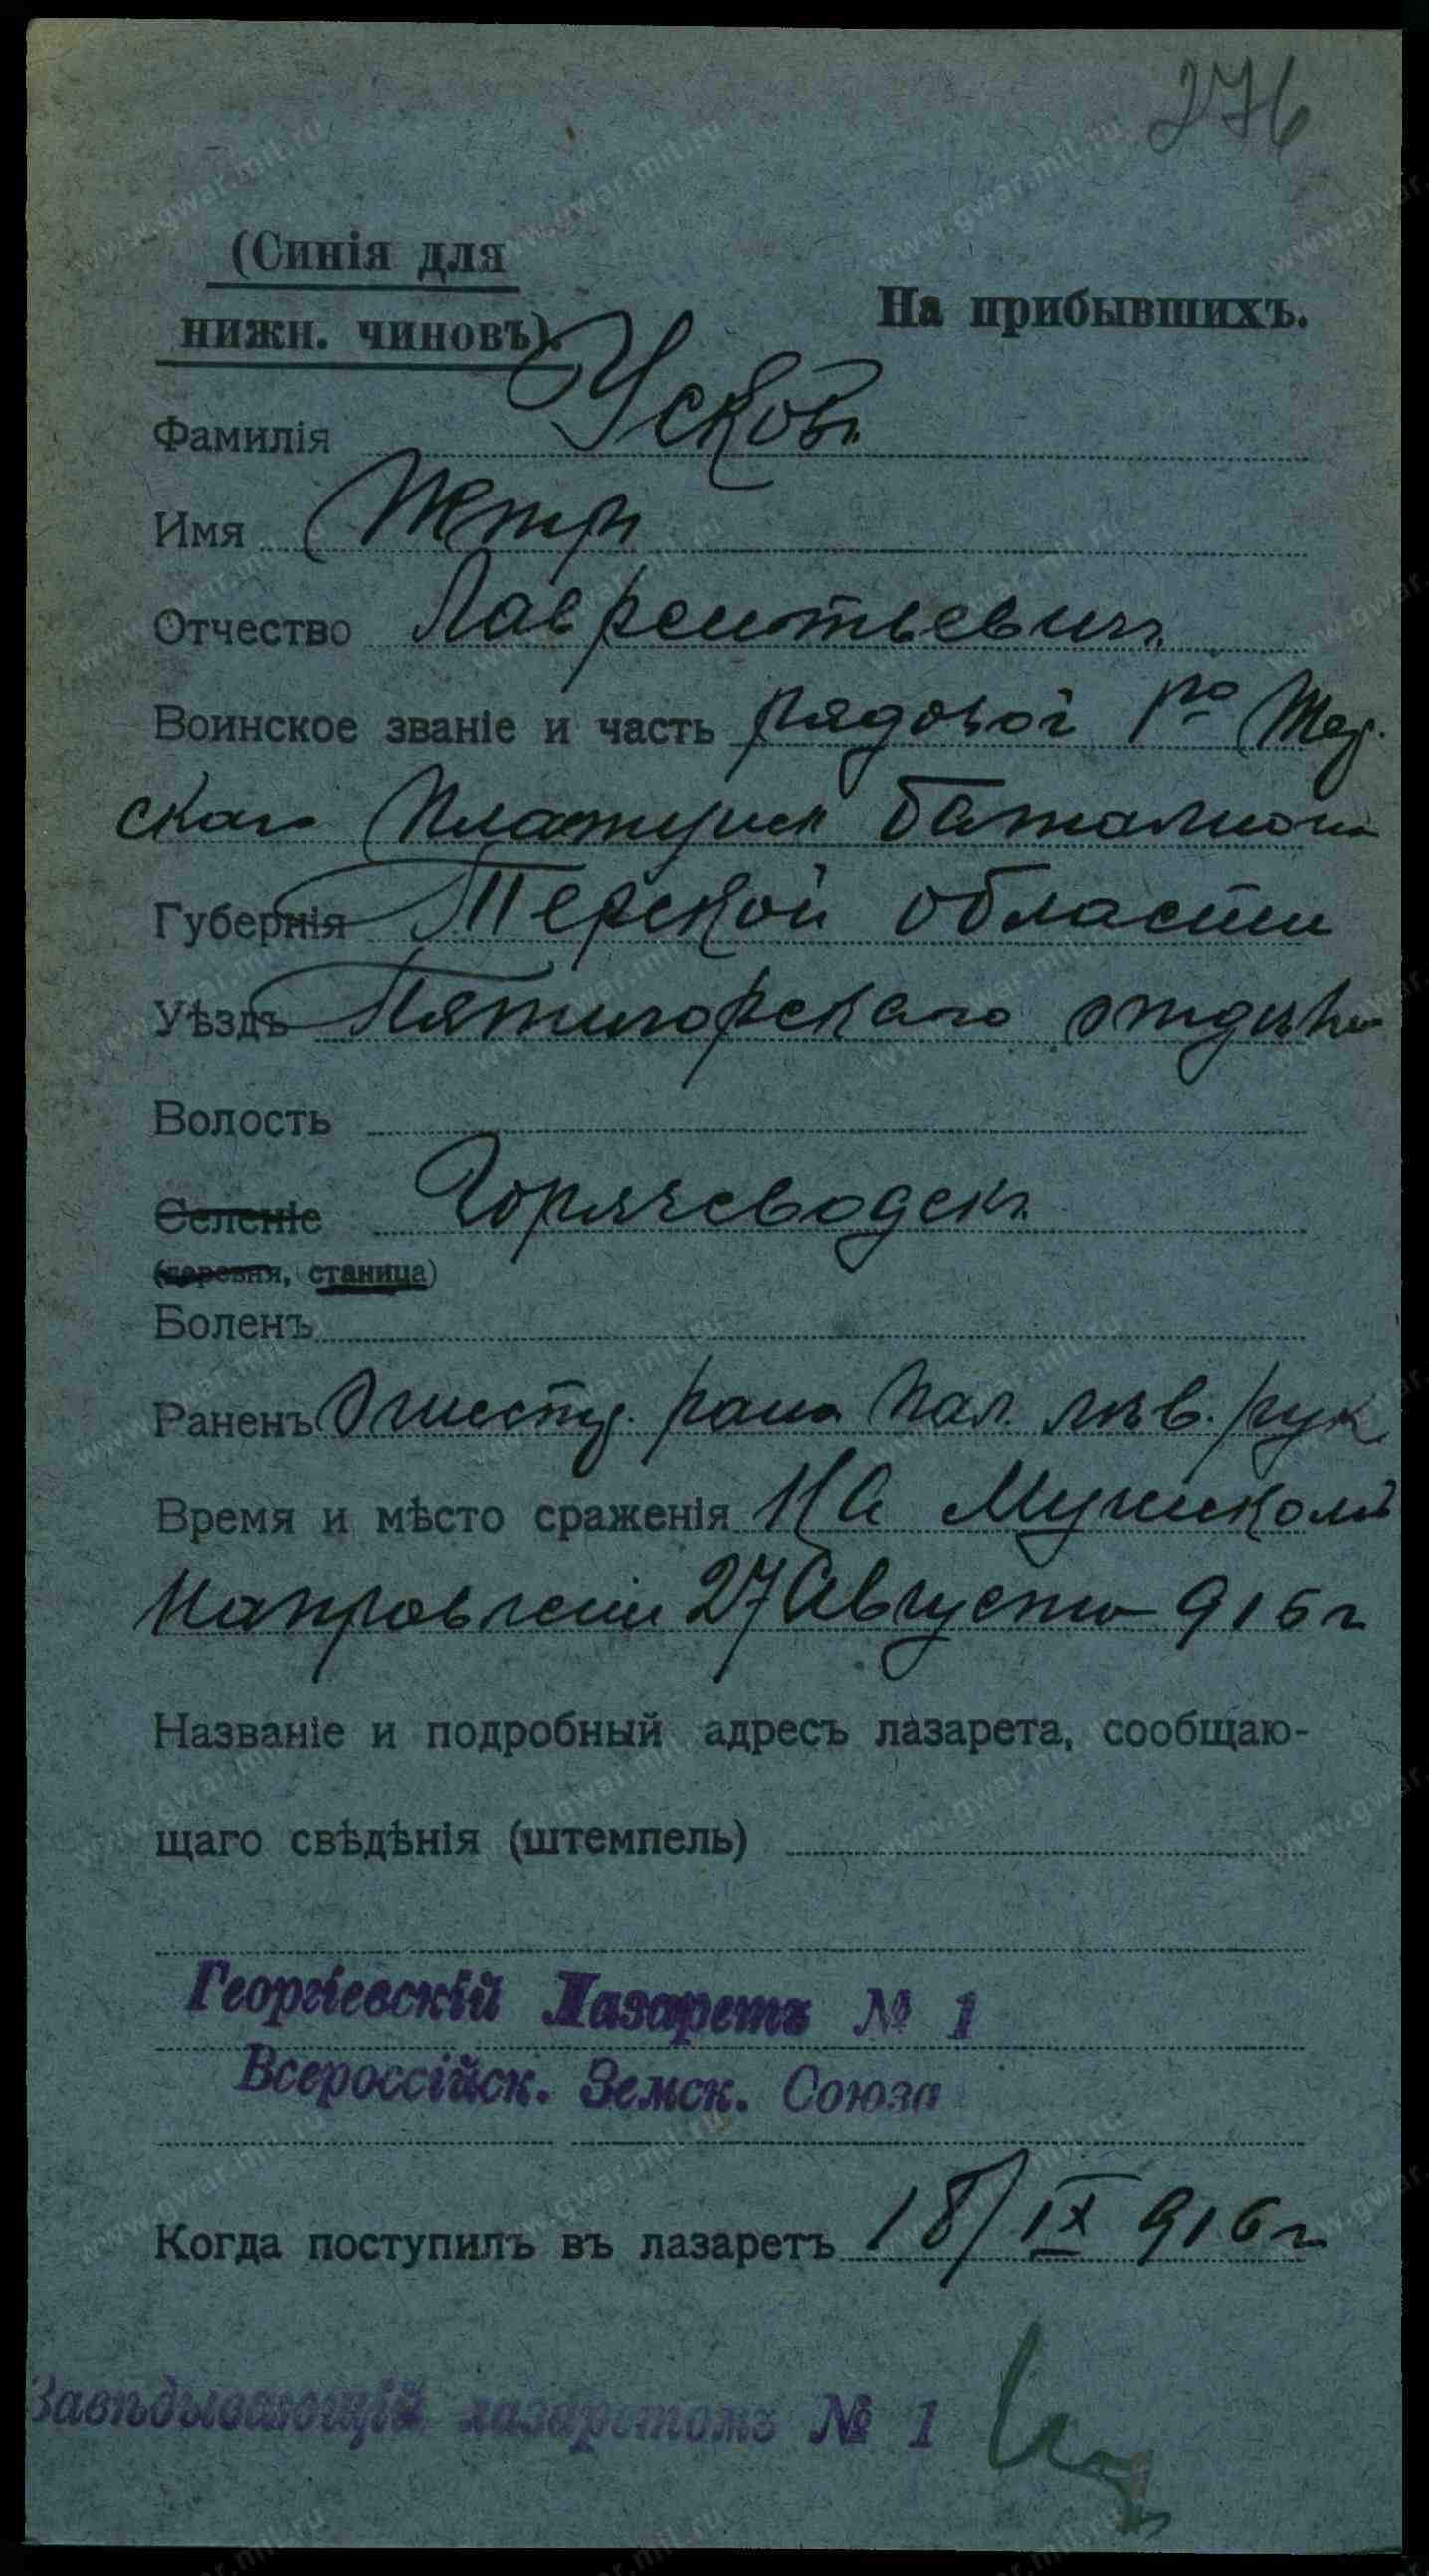 276
(Синія для
нижн. чиновъ).
На прибывшихъ.
Фамилія Усковъ
Имя Петръ
Отчество Лаврентьевичъ
Воинское званіе и часть рядовой 1го
скаго баталіона
Губернія Терской области
Уѣздъ Пятигорскаго отдѣла
Волость
Селеніе Горячеводскъ
(деревня, станица)
Боленъ
Раненъ Огнестр. рана пал. лѣв. рук
Время и мѣсто сраженія На Мушскомъ
Направленіи 27 Августа 916 г
Названіе и подробный адресъ лазарета, сообщаю-
щаго свѣдѣнія (штемпель)
Георгіевскій Лазаретъ № 1
Всероссійск. Земск. Союза
Когда поступилъ въ лазаретъ 18/IX 916 г
Завѣдывающій лазаретомъ № 1